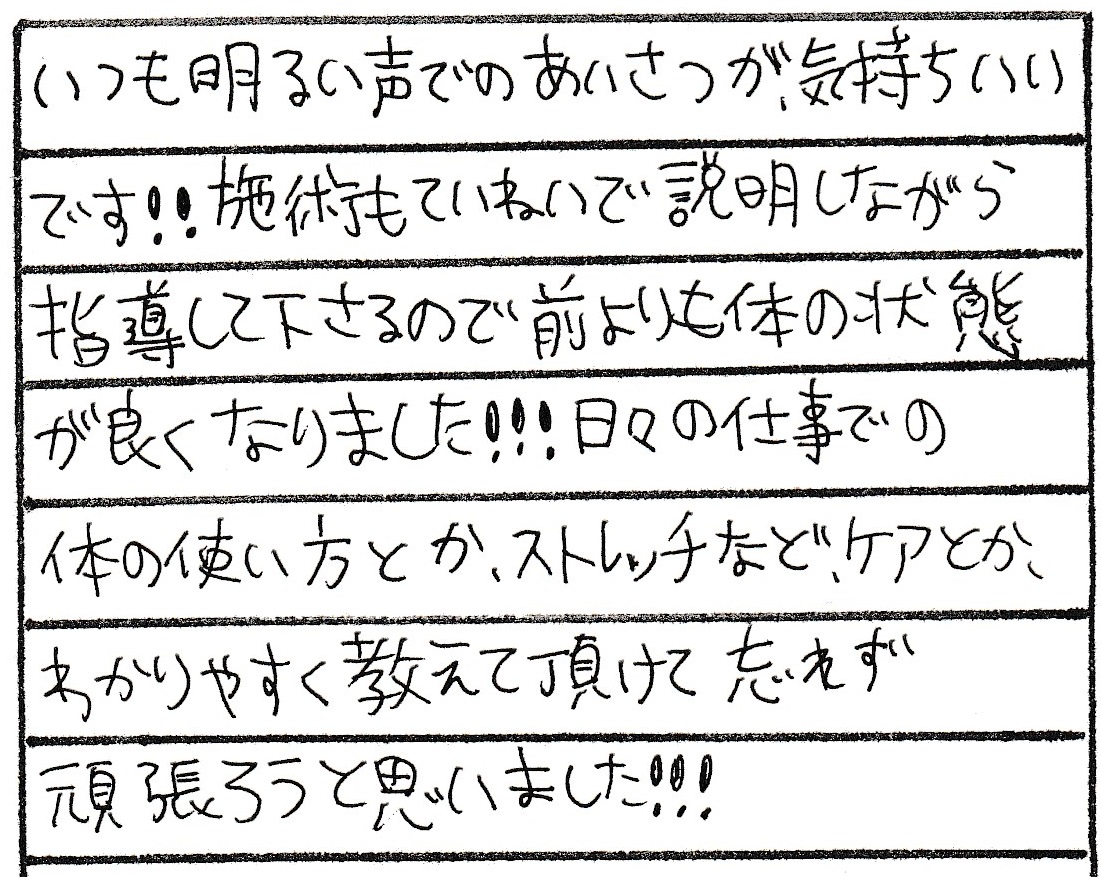 いつも明るい声でのあいさつが、気持ちいい
です!!施術もていねいで説明しながら
指導して下さるので前よりも体の状態
が良くなりました!!!日々の仕事での
体の使い方とか、ストレッチなど、ケアとか、
わかりやすく教えて頂けて忘れず
頑張ろうと思いました!!!